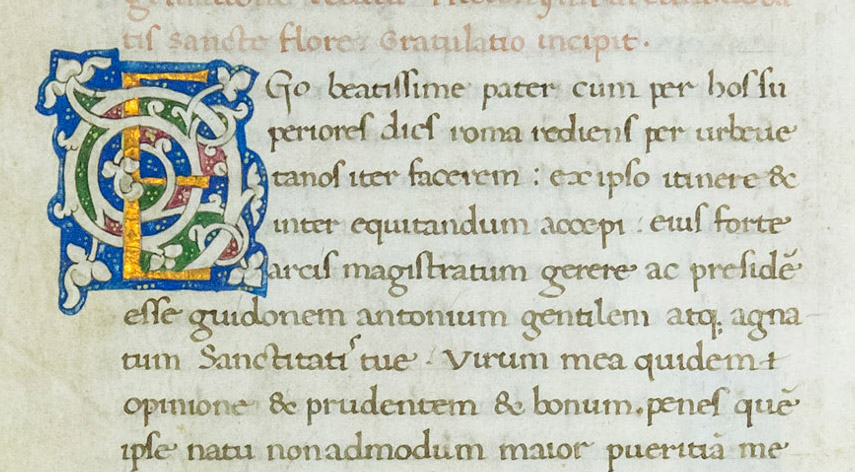 tis sancte flore: Gratulatio incipit.
EGo beatissime pater cum per hos su
periores dies roma rediens per urbeue
tanos iter facerem : ex ipso itinere &
inter equitandum accepi : eius forte
arcis magistratum gerere ac presidē
esse guidonem antonium gentilem atq; agna
tum Sanctitatis tue . Virum mea quidem
opinione & prudentem & bonum. penes quē
ipse natu non admodum maior pueritiā me